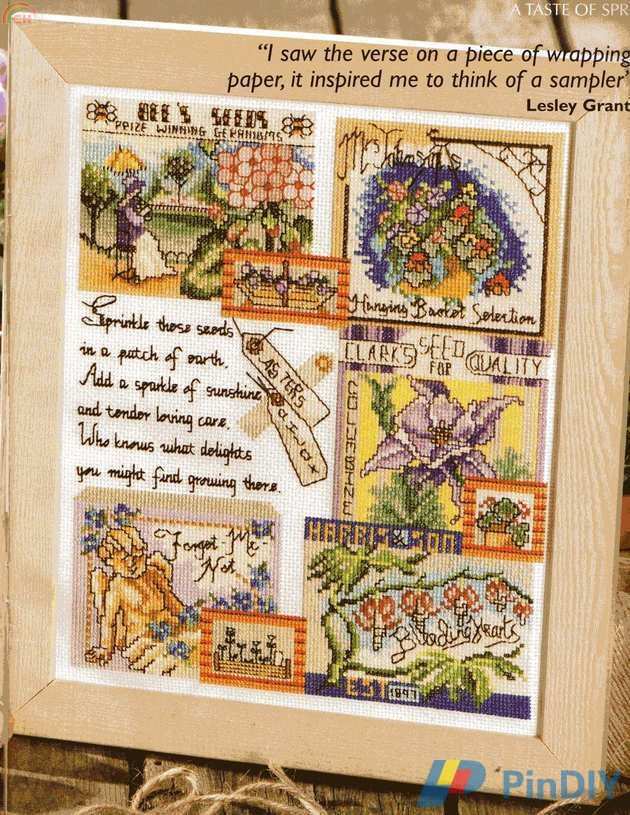 A TASTE OF SPR
“I saw the verse on a piece of wrapping
paper, it inspired me to think of a sampler”
Lesley Grant
BEE'S SEEDS
PRIZE WINNING GERANIUMS
Hanging Basket Selection
Sprinkle these seeds
in a patch of earth,
Add a sparkle of sunshine
and tender loving care,
Who knows what delights
you might find growing there.
ASTERS
CLARKS SEED
FOR
QUALITY
COLUMBINE
Forget Me
Not
HARRIS & SON
Bleeding Hearts
EST 1897
PinDIY